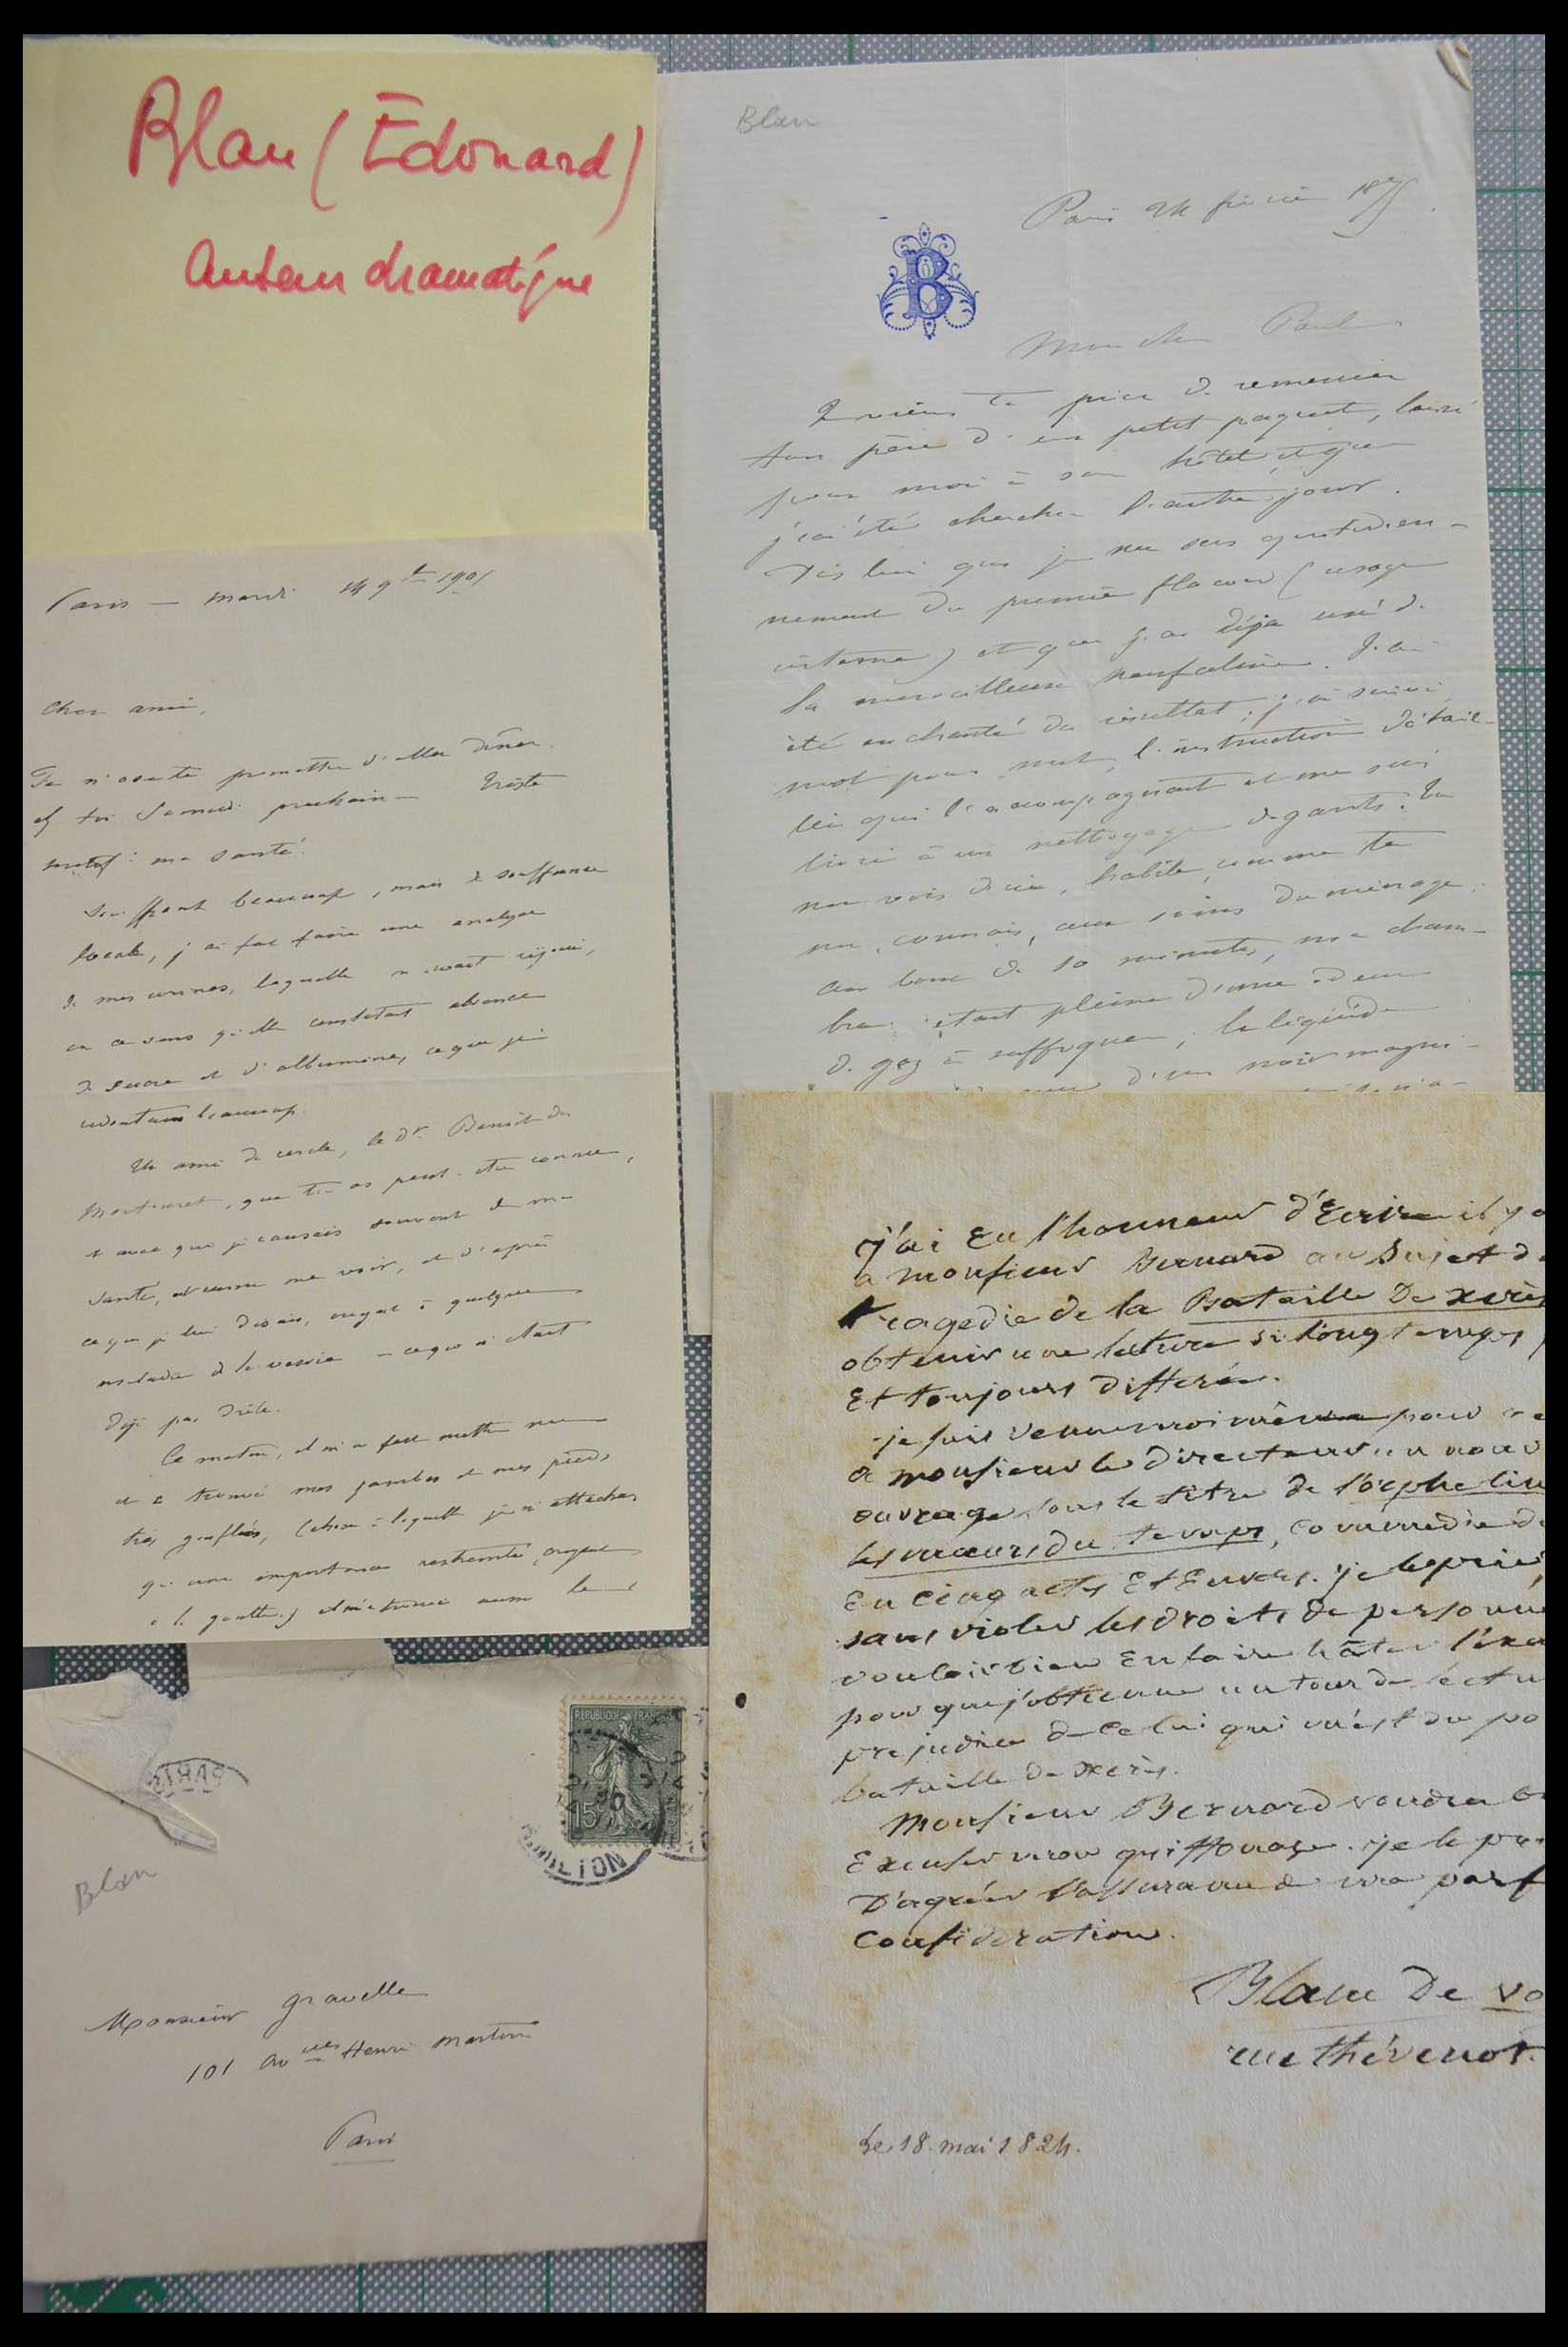 Blau (Édouard)
Auteur dramatique
Blau
Paris 24 février 187
B
Mon cher Paul
Je viens te prier de remercier
ton père d'un petit paquet, laissé
pour moi à son hôtel et que
j'ai été chercher l'autre jour.
Dis lui que je me sers quotidien-
nement du premier flacon (usage
interne) et que j'ai déjà usé de
la merveilleuse . J'ai
été enchanté du résultat ; j'ai suivi
mot pour mot, l'instruction détail-
lée qui l'accompagnait et me suis
livré à un nettoyage de gants. Tu
me vois d'ici, habile, comme tu
me connais, aux soins du ménage ;
au bout de 10 minutes, ma cham-
bre était pleine d'une odeur
de gaz à suffoquer, le liquide
d'un noir magni-
Paris — Mardi 14 9bre 1905
Cher ami,
Je n'ose te promettre d'aller dîner
ch toi Samedi prochain — Triste
motif : ma santé.
Souffrant beaucoup, mais de souffrance
locale, j'ai fait faire une analyse
de mes urines, laquelle m'avait réjoui,
en ce sens qu'elle constatait absence
de sucre et d'albumine, ce que je
redoutais beaucoup.
Un ami de cercle, le Dr Benoît du
Martouret, que tu as peut-être connu,
et avec qui je causais souvent de ma
santé, est venu me voir, et d'après
ce que je lui disais, croyait à quelque
maladie de la vessie — ce qui n'était
déjà pas drôle.
Ce matin, il m'a fait mettre nu
et a trouvé mes jambes et mes pieds
très gonflés, (chose à laquelle je n'attachais
qu'une importance restreinte, croyant
à la goutte) et m'a trouvé aussi le
j'ai Eu l'honneur d'Ecrire il y a
a monsieur Bernard au sujet de
tragedie de la Bataille De xerès
obtenir une lecture si longtemps
Et toujours differée.
je suis venu moi même pour
a monsieur le directeur un nouv
ouvrage sous le titre de l'orphelin
les mœurs du temps, commedie de
En cinq actes Et En vers. je le prie,
sans violer les droits de personne
vouloir bien En faire hâter l'exa
pour que j'obtienne un tour de lectu
prejudice de celui qui m'est du po
bataille de xerès.
Monsieur Bernard voudra b
Excuser mon griffonage. je le pr
D'agréer l'assurance de ma parf
Consideration.
Blanc De vo
rue thévenot.
Le 18. mai 1824.
REPUBLIQUE FRANÇAISE
15
PARIS
Blau
Monsieur Gravelle
101 Avnue Henri Martin
Paris